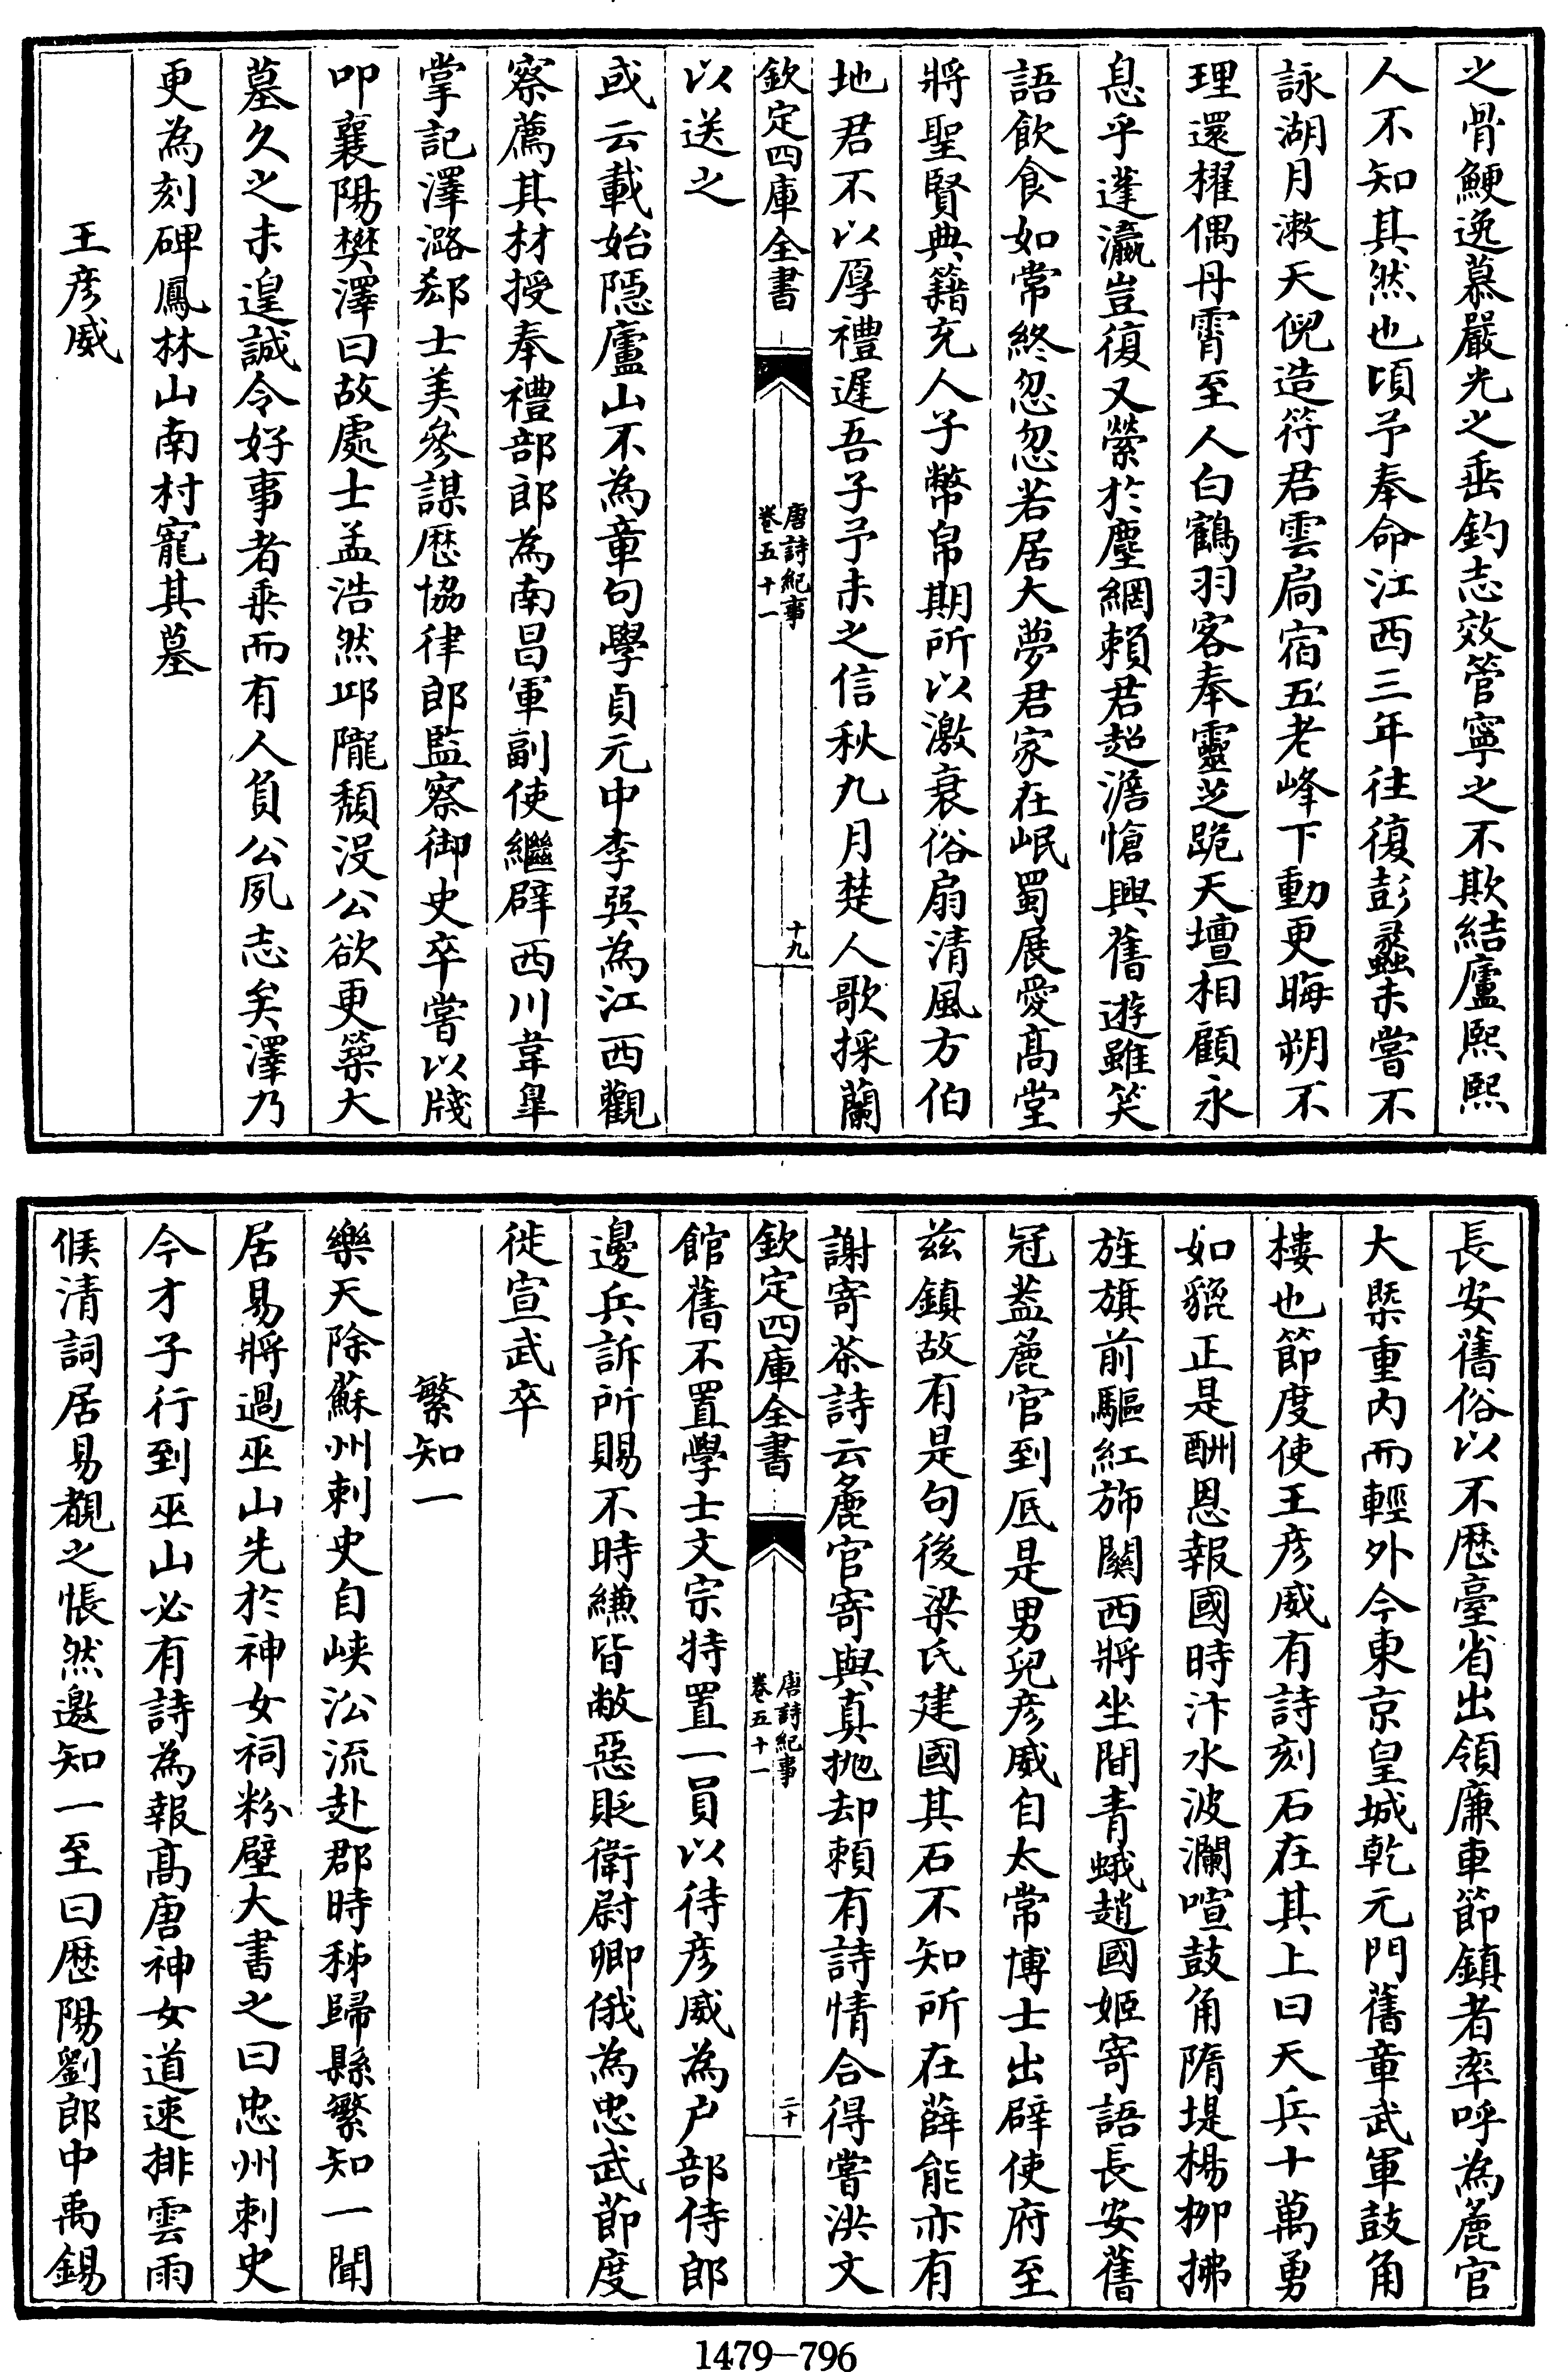 之骨鯁逸慕嚴光之垂釣志效管寧之不欺結廬熙熙
人不知其然也頃予奉命江西三年往復彭蠡未嘗不
詠湖月漱天倪造符君雲扃宿五老峰下動更晦朔不
理還櫂偶丹霄至人白鶴羽客奉靈芝跪天壇相顧永
息乎蓬瀛豈復又縈於塵網賴君超澹愴興舊遊雖笑
語飲食如常終忽忽若居大夢君家在岷蜀展愛髙堂
將聖賢典籍充人子幣帛期所以激衰俗扇清風方伯
地君不以厚禮遲吾子予未之信秋九月楚人歌採蘭
欽定四庫全書
唐詩紀事
卷五十一
十九
以送之
或云載始隠廬山不為章句學貞元中李巽為江西觀
察薦其材授奉禮部郎為南昌軍副使繼辟西川韋臯
掌記澤潞郄士美參謀歴協律郎監察御史卒嘗以牋
叩襄陽樊澤曰故處士孟浩然邱隴頽没公欲更築大
墓久之未遑誠令好事者乗而有人負公夙志矣澤乃
更為刻碑鳳林山南村寵其墓
王彦威
長安舊俗以不歴臺省出領廉車節鎮者率呼為麄官
大槩重内而輕外今東京皇城乾元門舊章武軍鼓角
樓也節度使王彦威有詩刻石在其上曰天兵十萬勇
如貔正是酬恩報國時汴水波瀾喧鼓角隋堤楊柳拂
旌旗前驅紅斾關西將坐間青蛾趙國姬寄語長安舊
冠葢麄官到底是男兒彦威自太常博士出辟使府至
兹鎮故有是句後梁氏建國其石不知所在薛能亦有
謝寄茶詩云麄官寄與真抛却頼有詩情合得嘗洪文
欽定四庫全書
唐詩紀事
卷五十一
二十
館舊不置學士文宗特置一員以待彦威為户部侍郎
邊兵訴所賜不時縑皆敝惡貶衛尉卿俄為忠武節度
徙宣武卒
繁知一
樂天除蘇州刺史自峽沿流赴郡時秭歸縣繁知一聞
居易將過巫山先於神女祠粉壁大書之曰忠州刺史
今才子行到巫山必有詩為報髙唐神女道速排雲雨
候清詞居易覩之悵然邀知一至曰歴陽劉郎中禹錫
1479—796